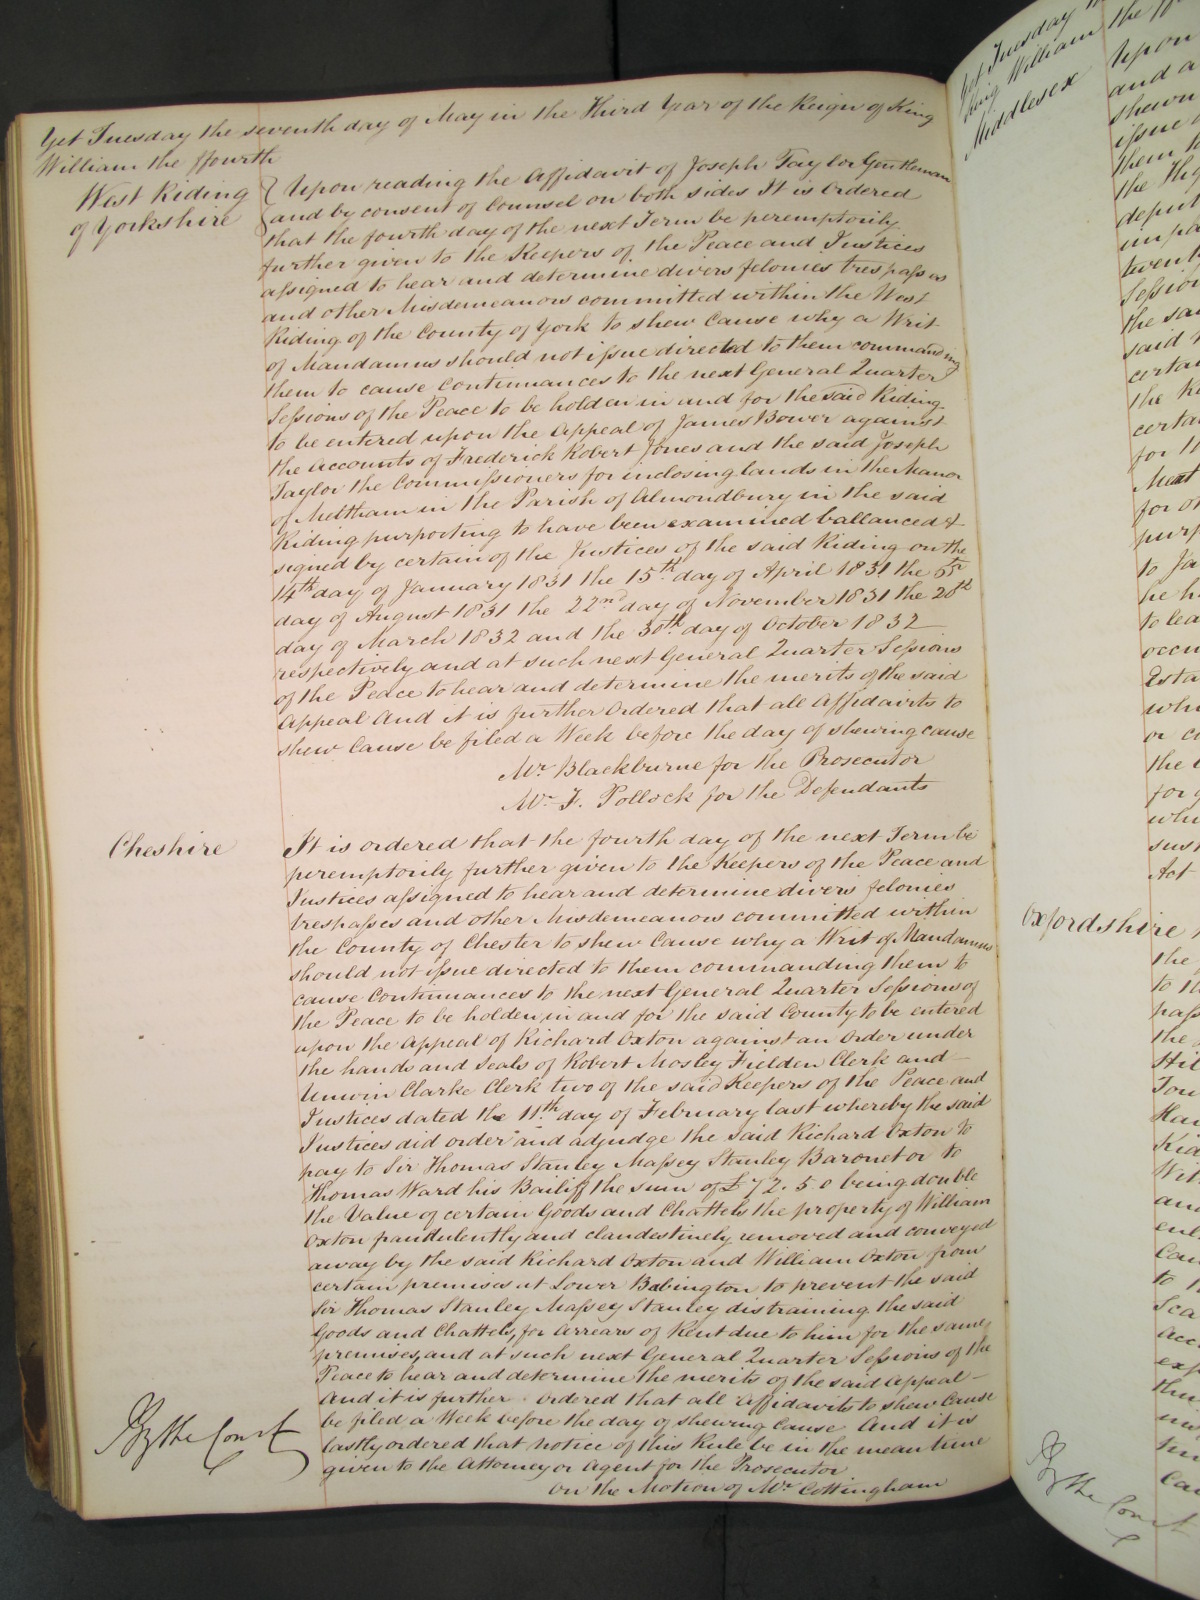 Yet Tuesday the seventh day of May in the Third Year of the Reign of King
William the ffourth
West Riding
of Yorkshire
Upon reading the Affidavit of Joseph Taylor Gentleman
and by consent of Counsel on both sides It is Ordered
that the fourth day of the next Term be peremptorily
further given to the Keepers of the Peace and Justices
assigned to hear and determine divers felonies trespasses
and other Misdemeanors committed within the West
Riding of the County of York to shew Cause why a Writ
of Mandamus should not issue directed to them commanding
them to cause Continuances to the next General Quarter
Sessions of the Peace to be holden in and for the said Riding
to be entered upon the Appeal of James Bower against
the Accounts of Frederick Robert Jones and the said Joseph
Taylor the Commissioners for inclosing lands in the Manor
of Meltham in the Parish of Almondbury in the said
Riding purporting to have been examined ballanced &
signed by certain of the Justices of the said Riding on the
14th day of January 1831 the 15th day of April 1831 the 5th
day of August 1831 the 22nd day of November 1831 the 20th
day of March 1832 and the 30th day of October 1832
respectively and at such next General Quarter Sessions
of the Peace to hear and determine the merits of the said
Appeal And it is further Ordered that all Affidavits to
shew Cause be filed a Week before the day of shewing cause
Mr. Blackburne for the Prosecutor
Mr. F. Pollock for the Defendants
Cheshire
It is ordered that the fourth day of the next Term be
peremptorily further given to the Keepers of the Peace and
Justices assigned to hear and determine divers felonies
trespasses and other Misdemeanors committed within
the County of Chester to shew Cause why a Writ of Mandamus
should not issue directed to them commanding them to
cause Continuances to the next General Quarter Sessions of
the Peace to be holden in and for the said County to be entered
upon the Appeal of Richard Oxton against an Order under
the hands and Seals of Robert Mosley Fielden Clerk and
Unwin Clarke Clerk two of the said Keepers of the Peace and
Justices dated the 11th day of February last whereby the said
Justices did order and adjudge the said Richard Oxton to
pay to Sir Thomas Stanley Massey Stanley Baronet or to
Thomas Ward his Bailiff the sum of £72. 5 0 being double
the Value of certain Goods and Chattels the property of William
Oxton fraudulently and clandestinely removed and conveyed
away by the said Richard Oxton and William Oxton from
certain premises at Lower Bebington to prevent the said
Sir Thomas Stanley Massey Stanley distraining the said
Goods and Chattels, for Arrears of Rent due to him for the same
premises, and at such next General Quarter Sessions of the
Peace to hear and determine the merits of the said Appeal
And it is further ordered that all Affidavits to shew Cause
be filed a Week before the day of shewing Cause And it is
lastly ordered that notice of this Rule be in the mean time
given to the Attorney or Agent for the Prosecutor
On the Motion of Mr Cottingham
By the Court
Yet Tuesday
King William the
Middlesex
Upon
and a
shewn
issue
them to
the
Sessions
the said
said
certain
for th
Next
for
to Ja
he h
to lea
or co
the
for
Act
Oxfordshire
the
to
the
and
to
By the Court